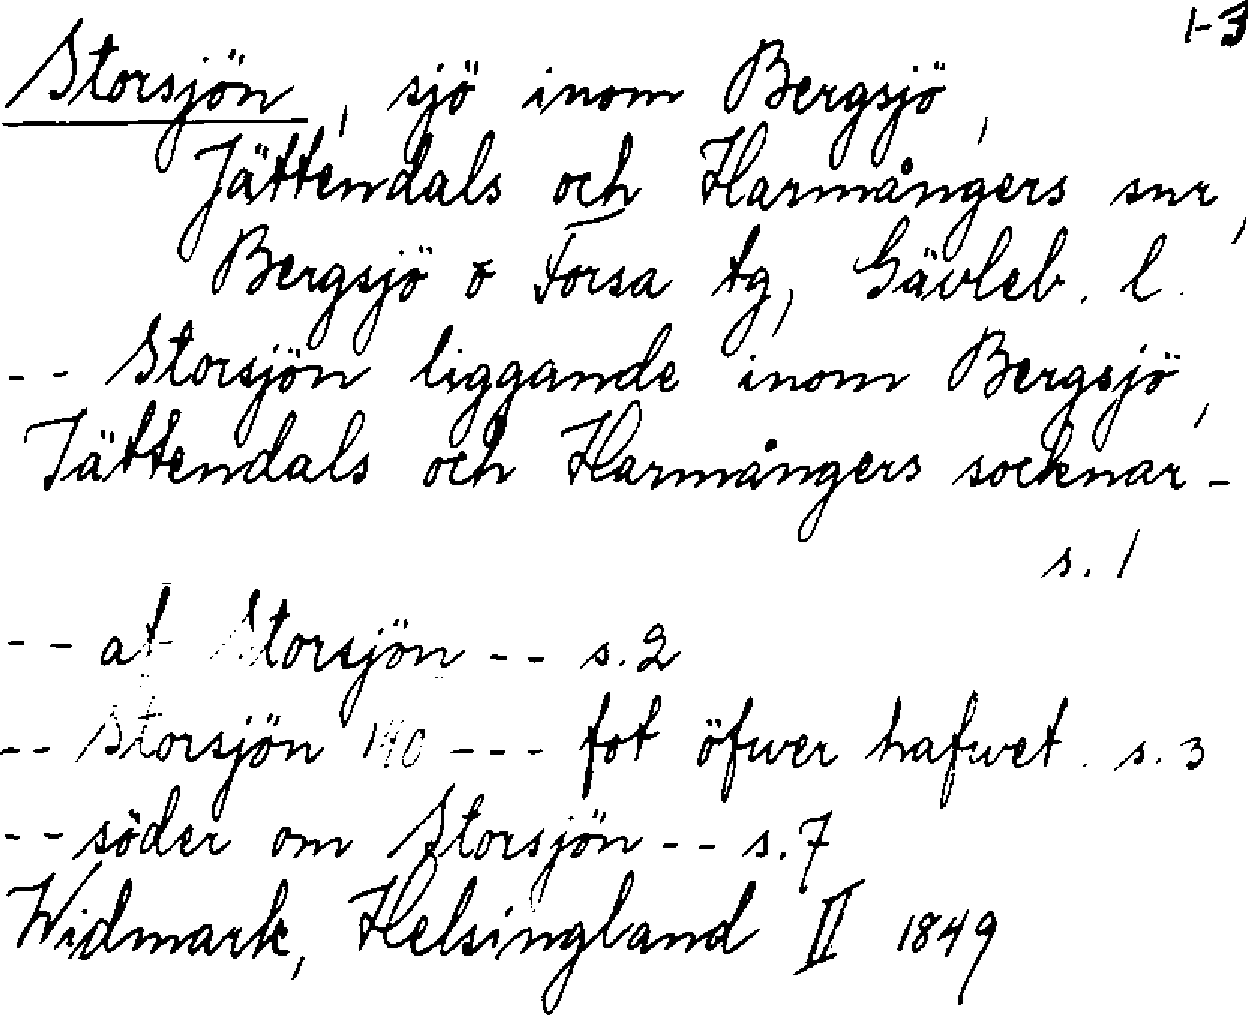 1-3
Storsjön, sjö inom Bergsjö,
Jättendals och Harmångers snr,
Bergsjö o Forsa tg, Gävleb. l.
-- Storsjön liggande inom Bergsjö,
Jättendals och Harmångers socknar -
s. 1
-- af Storsjön -- s. 2
-- Storsjön 140 --- fot öfwer hafwet. s. 3
-- söder om Storsjön -- s. 7
Widmark, Helsingland II 1849